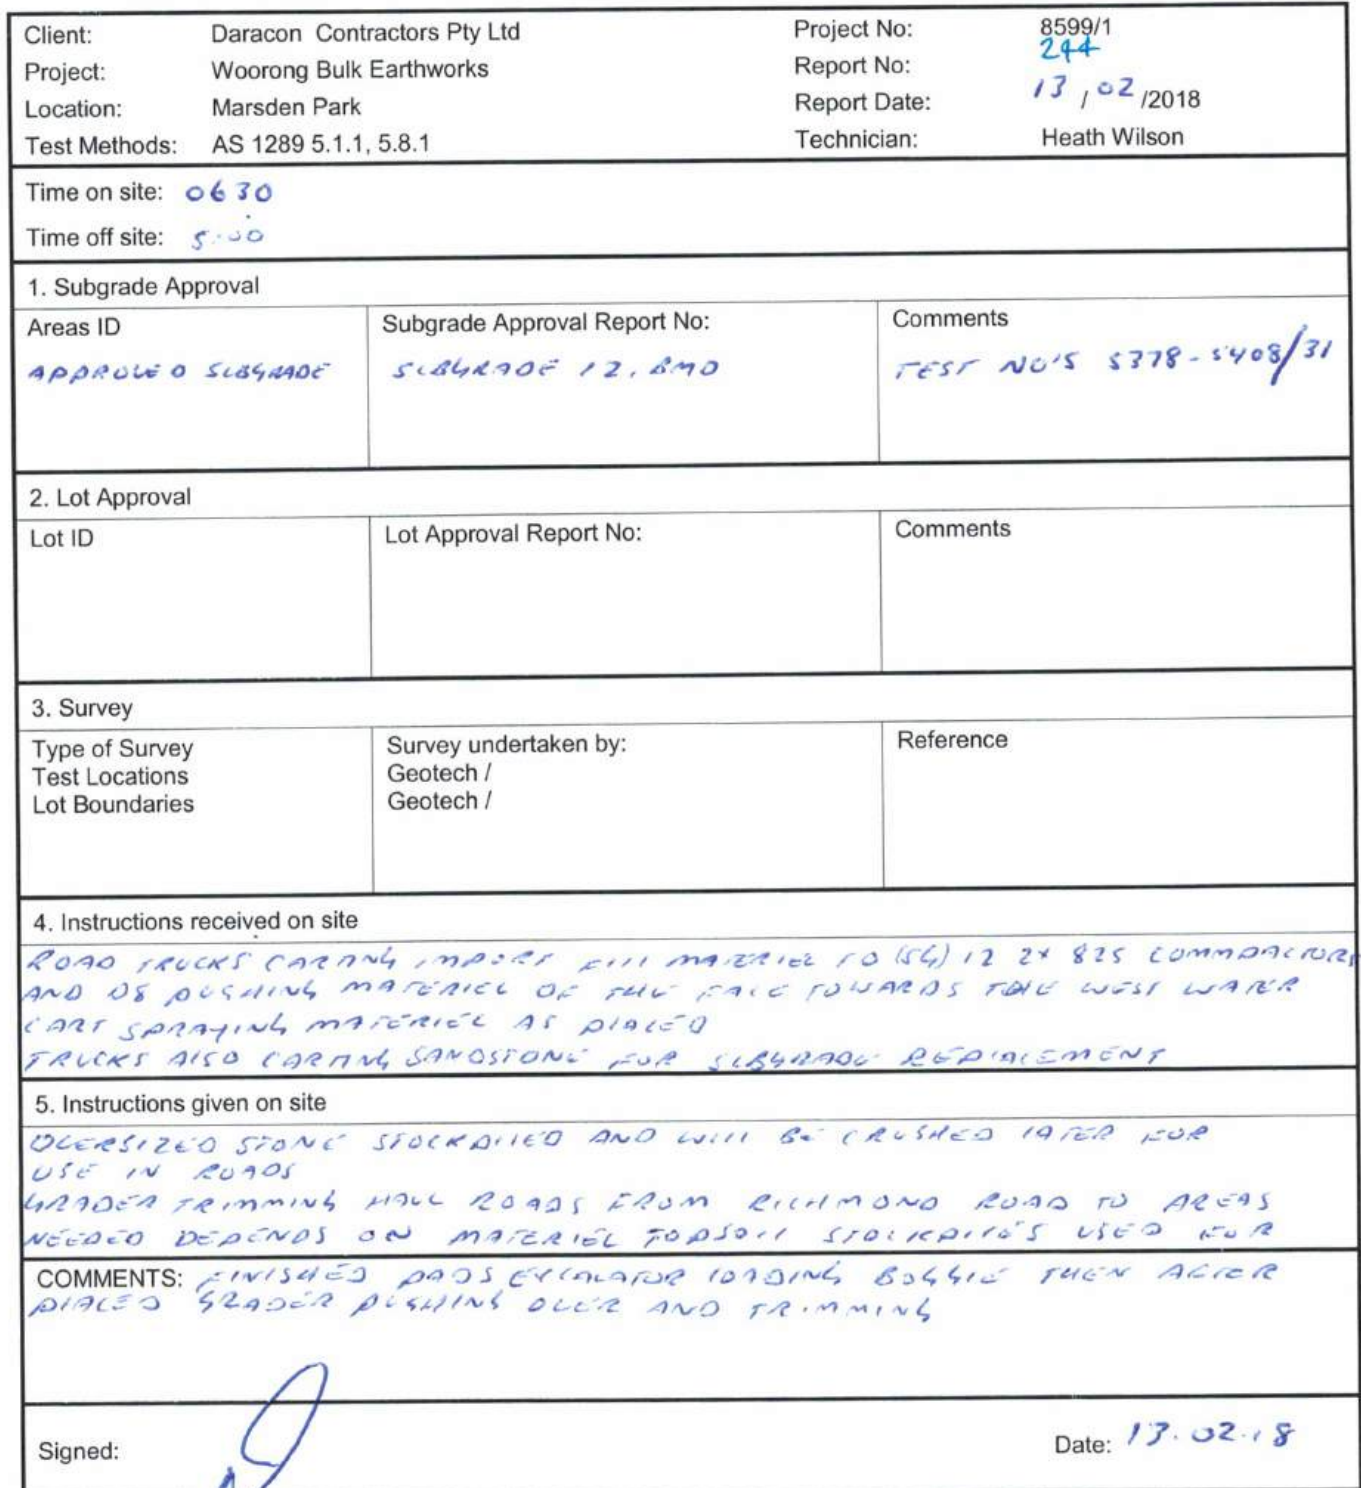 Client: Daracon Contractors Pty Ltd Project No: 8599/1
Project: Woorong Bulk Earthworks Report No: 244
Location: Marsden Park Report Date: 13 / 02 /2018
Test Methods: AS 1289 5.1.1, 5.8.1 Technician: Heath Wilson
Time on site: 0630
Time off site: 5:00
1. Subgrade Approval
Areas ID Subgrade Approval Report No: Comments
APPROVED SUBGRADE SUBGRADE 12, BMD TEST NO'S 5378-5408/31
2. Lot Approval
Lot ID Lot Approval Report No: Comments
3. Survey
Type of Survey Survey undertaken by: Reference
Test Locations Geotech /
Lot Boundaries Geotech /
4. Instructions received on site
ROAD TRUCKS CARTING IMPORT FILL MATERIEL TO (SG) 12 2X 825 COMMPACTORS
AND D8 PUSHING MATERIEL OF THE FACE TOWARDS THE WEST WATER
CART SPRAYING MATERIEL AS PLACED
TRUCKS ALSO CARTING SANDSTONE FOR SUBGRADE REPLACEMENT
5. Instructions given on site
OVERSIZED STONE STOCKPILED AND WILL BE CRUSHED LATER FOR
USE IN ROADS
GRADER TRIMMING HAUL ROADS FROM RICHMOND ROAD TO AREAS
NEEDED DEPENDS ON MATERIEL TOPSOIL STOCKPILE'S USED FOR
COMMENTS: FINISHED PADS EXCAVATOR LOADING BOGGIE THEN AFTER
PLACED GRADER PUSHING OVER AND TRIMMING
Signed: Date: 13.02.18